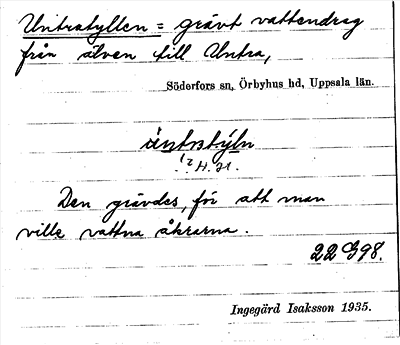 Untratyllen = grävt vattendrag
från älven till Untra,
Söderfors sn, Örbyhus hd, Uppsala län.
Den grävdes, för att man
ville vattna åkrarna.
22 G98.
Ingegärd Isaksson 1935.